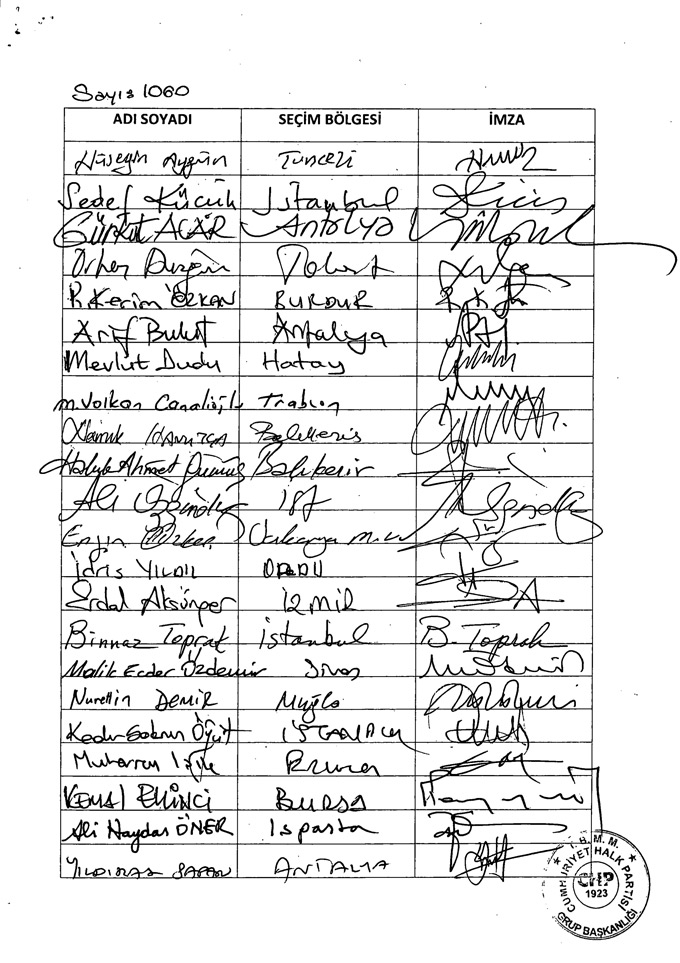 Sayı: 1060
ADI SOYADI SEÇİM BÖLGESİ İMZA
Hüseyin Aygün Tunceli
Sedef Küçük İstanbul
Gürkut ACAR Antalya
Orhan Düzgün Tokat
R. Kerim ÖZKAN BURDUR
Arif Bulut Antalya
Mevlut Dudu Hatay
M. Volkan Canalioğlu Trabzon
Haluk Ahmet Gümüş Balıkesir
Ali Özgündüz İst
Engin Özkoç Sakarya m.v.
İdris YILDIZ ORDU
Erdal Aksünger İZMİR
Binnaz Toprak İstanbul B. Toprak
Malik Ecder Özdemir Sivas
Nurettin DEMİR Muğla
Kadir Gökmen Öğüt İSTANBUL
Muharrem
KEMAL EKİNCİ BURSA
Ali Haydar ÖNER Isparta
YILDIRAY SAPAN ANTALYA
T.B.M.M.
CUMHURİYET HALK PARTİSİ
CHP
1923
GRUP BAŞKANLIĞI